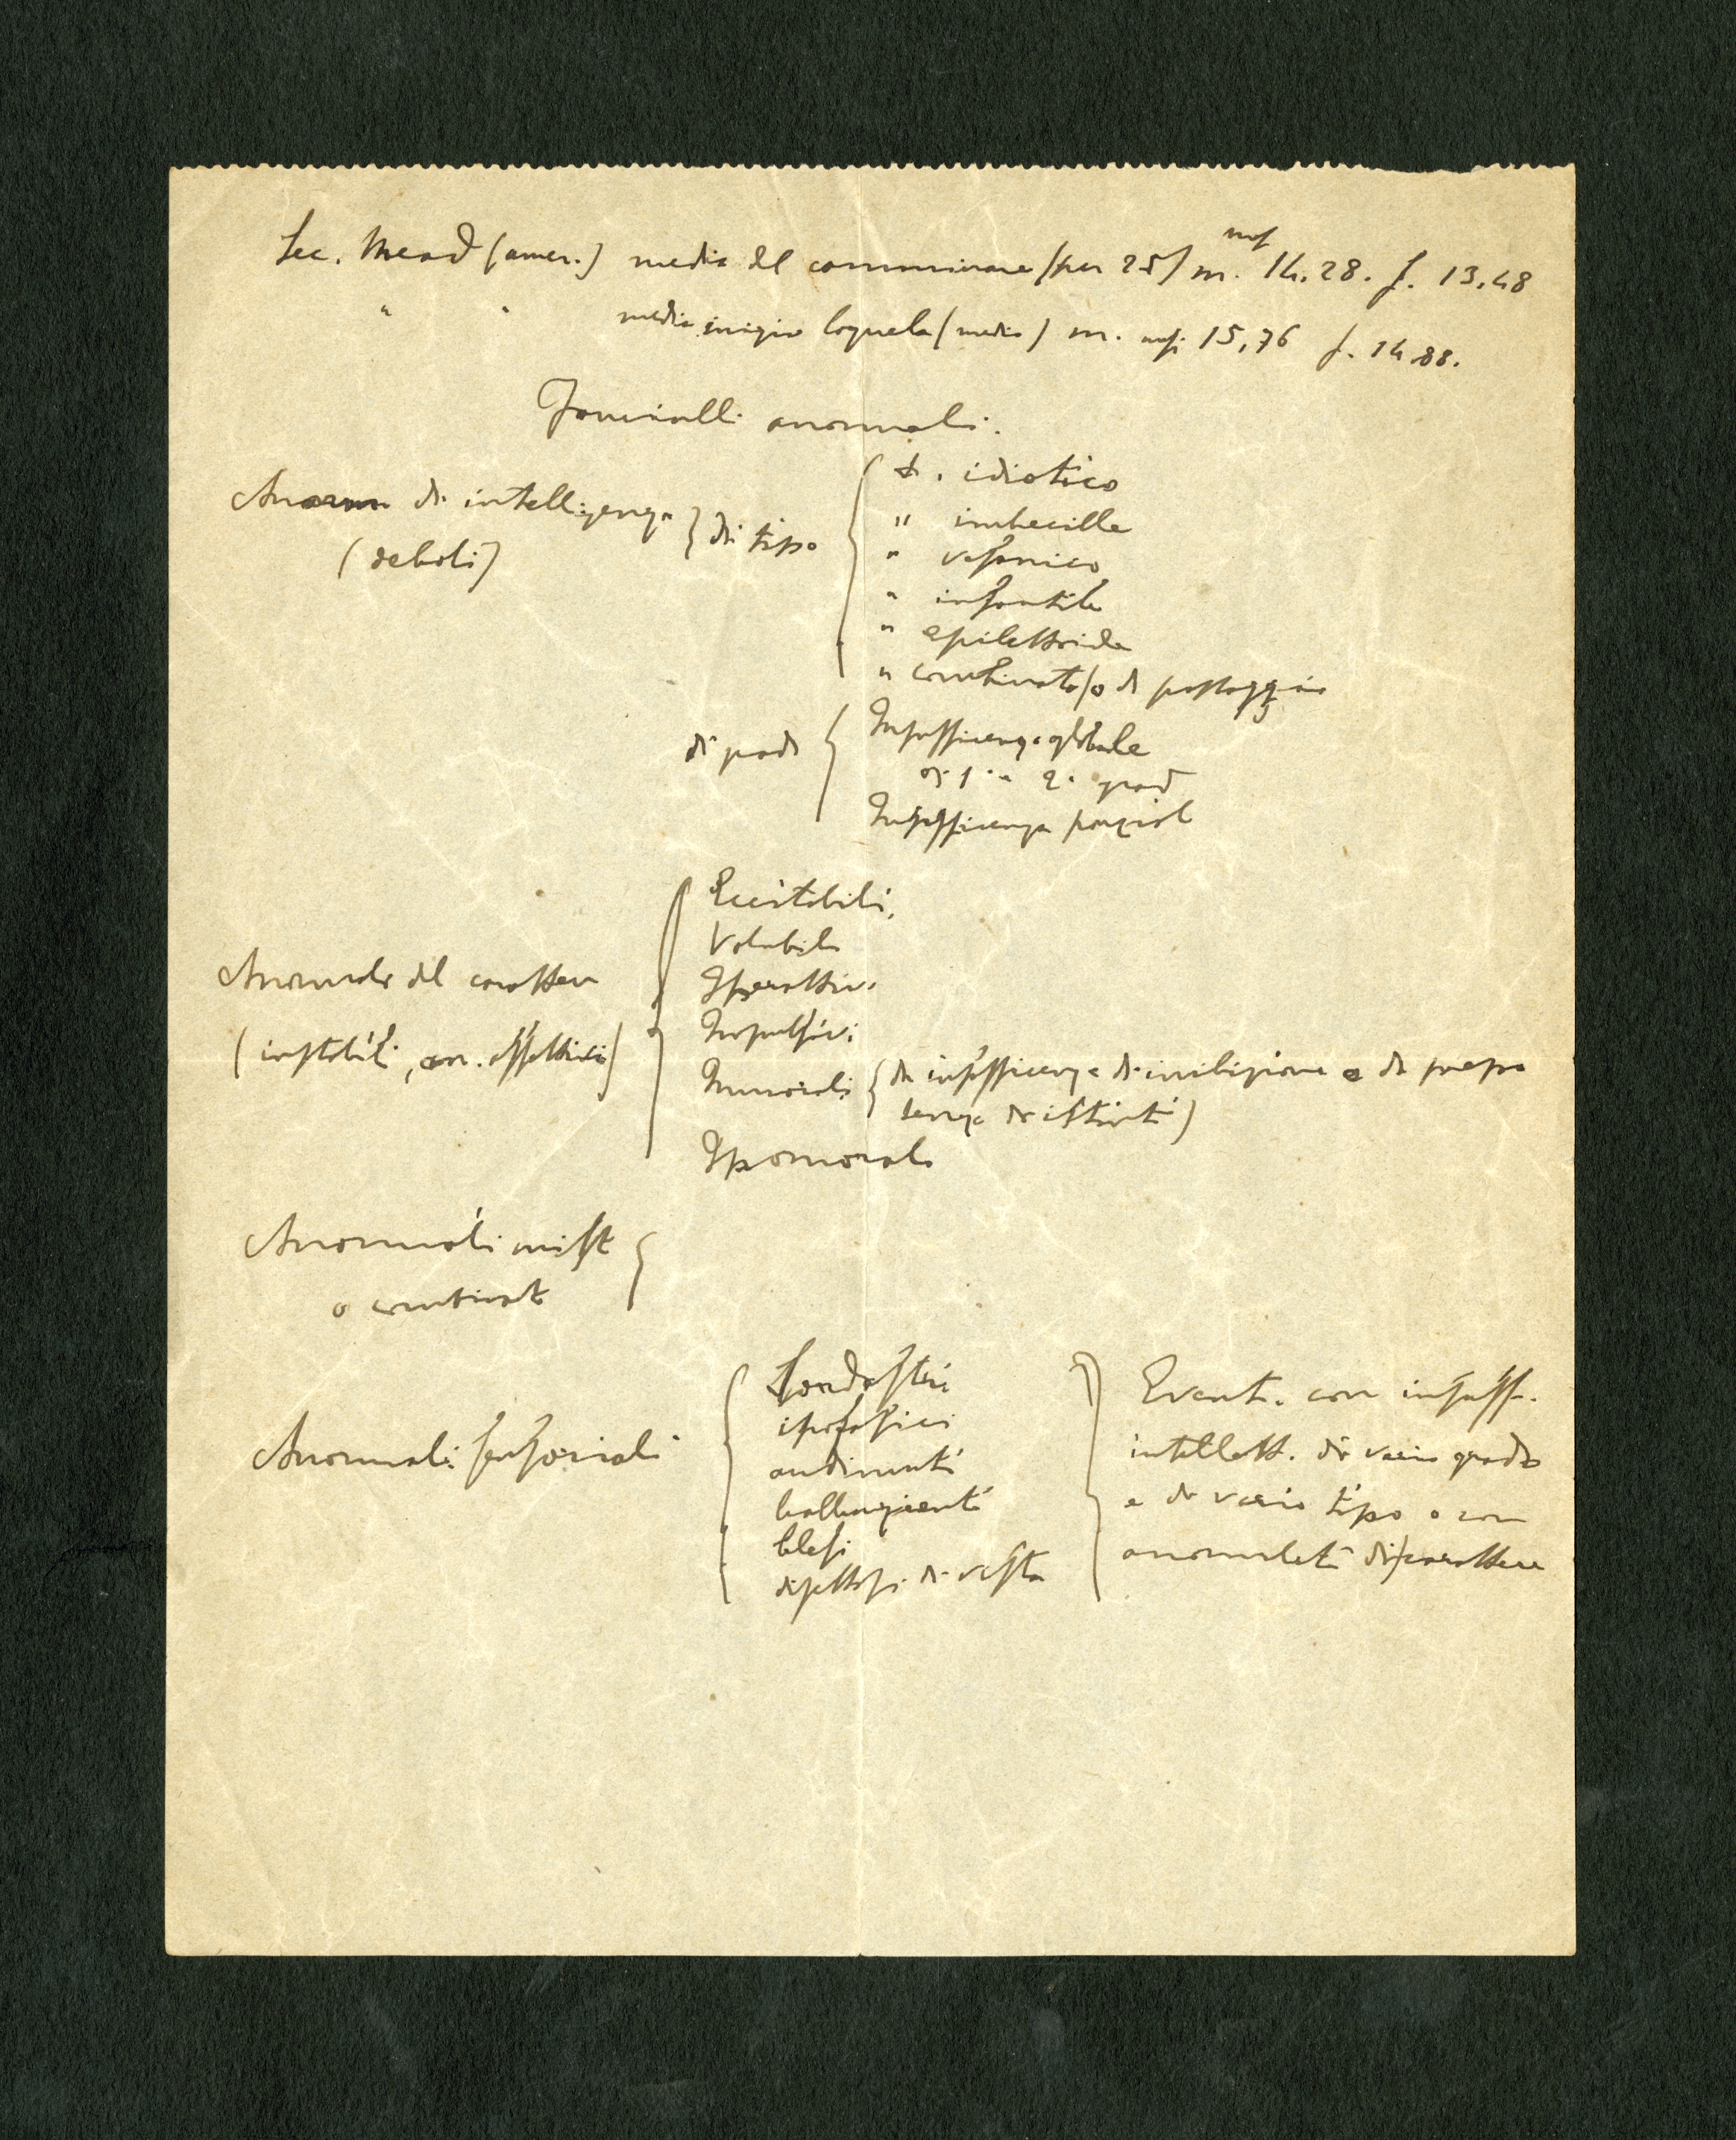 Sec. Mead (amer.) media del camminare (per 25) m. mesi 14.28. f. 13.48
" " media inizio loquela (media) m. mesi 15,76 f. 14.88.
Fanciulli anormali.
Anorm di intelligenza } di tipo {
(deboli)
t. idiotico
" imbecille
" vesanico
" infantile
" epilettoide
" combinato/o di passaggio
di gradi { Insufficienza globale
di 1° e 2° grad
Insufficienza parzial
Anormali del carattere {
(instabili, an. affettivi)
Eccitabili,
Volubili
Iperattivi
Impulsivi
Immorali { da insufficienza di inibizione e da prepo
tenza di istinti)
Ipomorali
Anormali misti {
o combinati
Anormali sensoriali {
Sordastri
ipofasici
audimuti
balbuzienti
blesi
difettosi di vista
} Event. con insuff.
intellett. di vario grado
e di vario tipo o con
anomalie di carattere